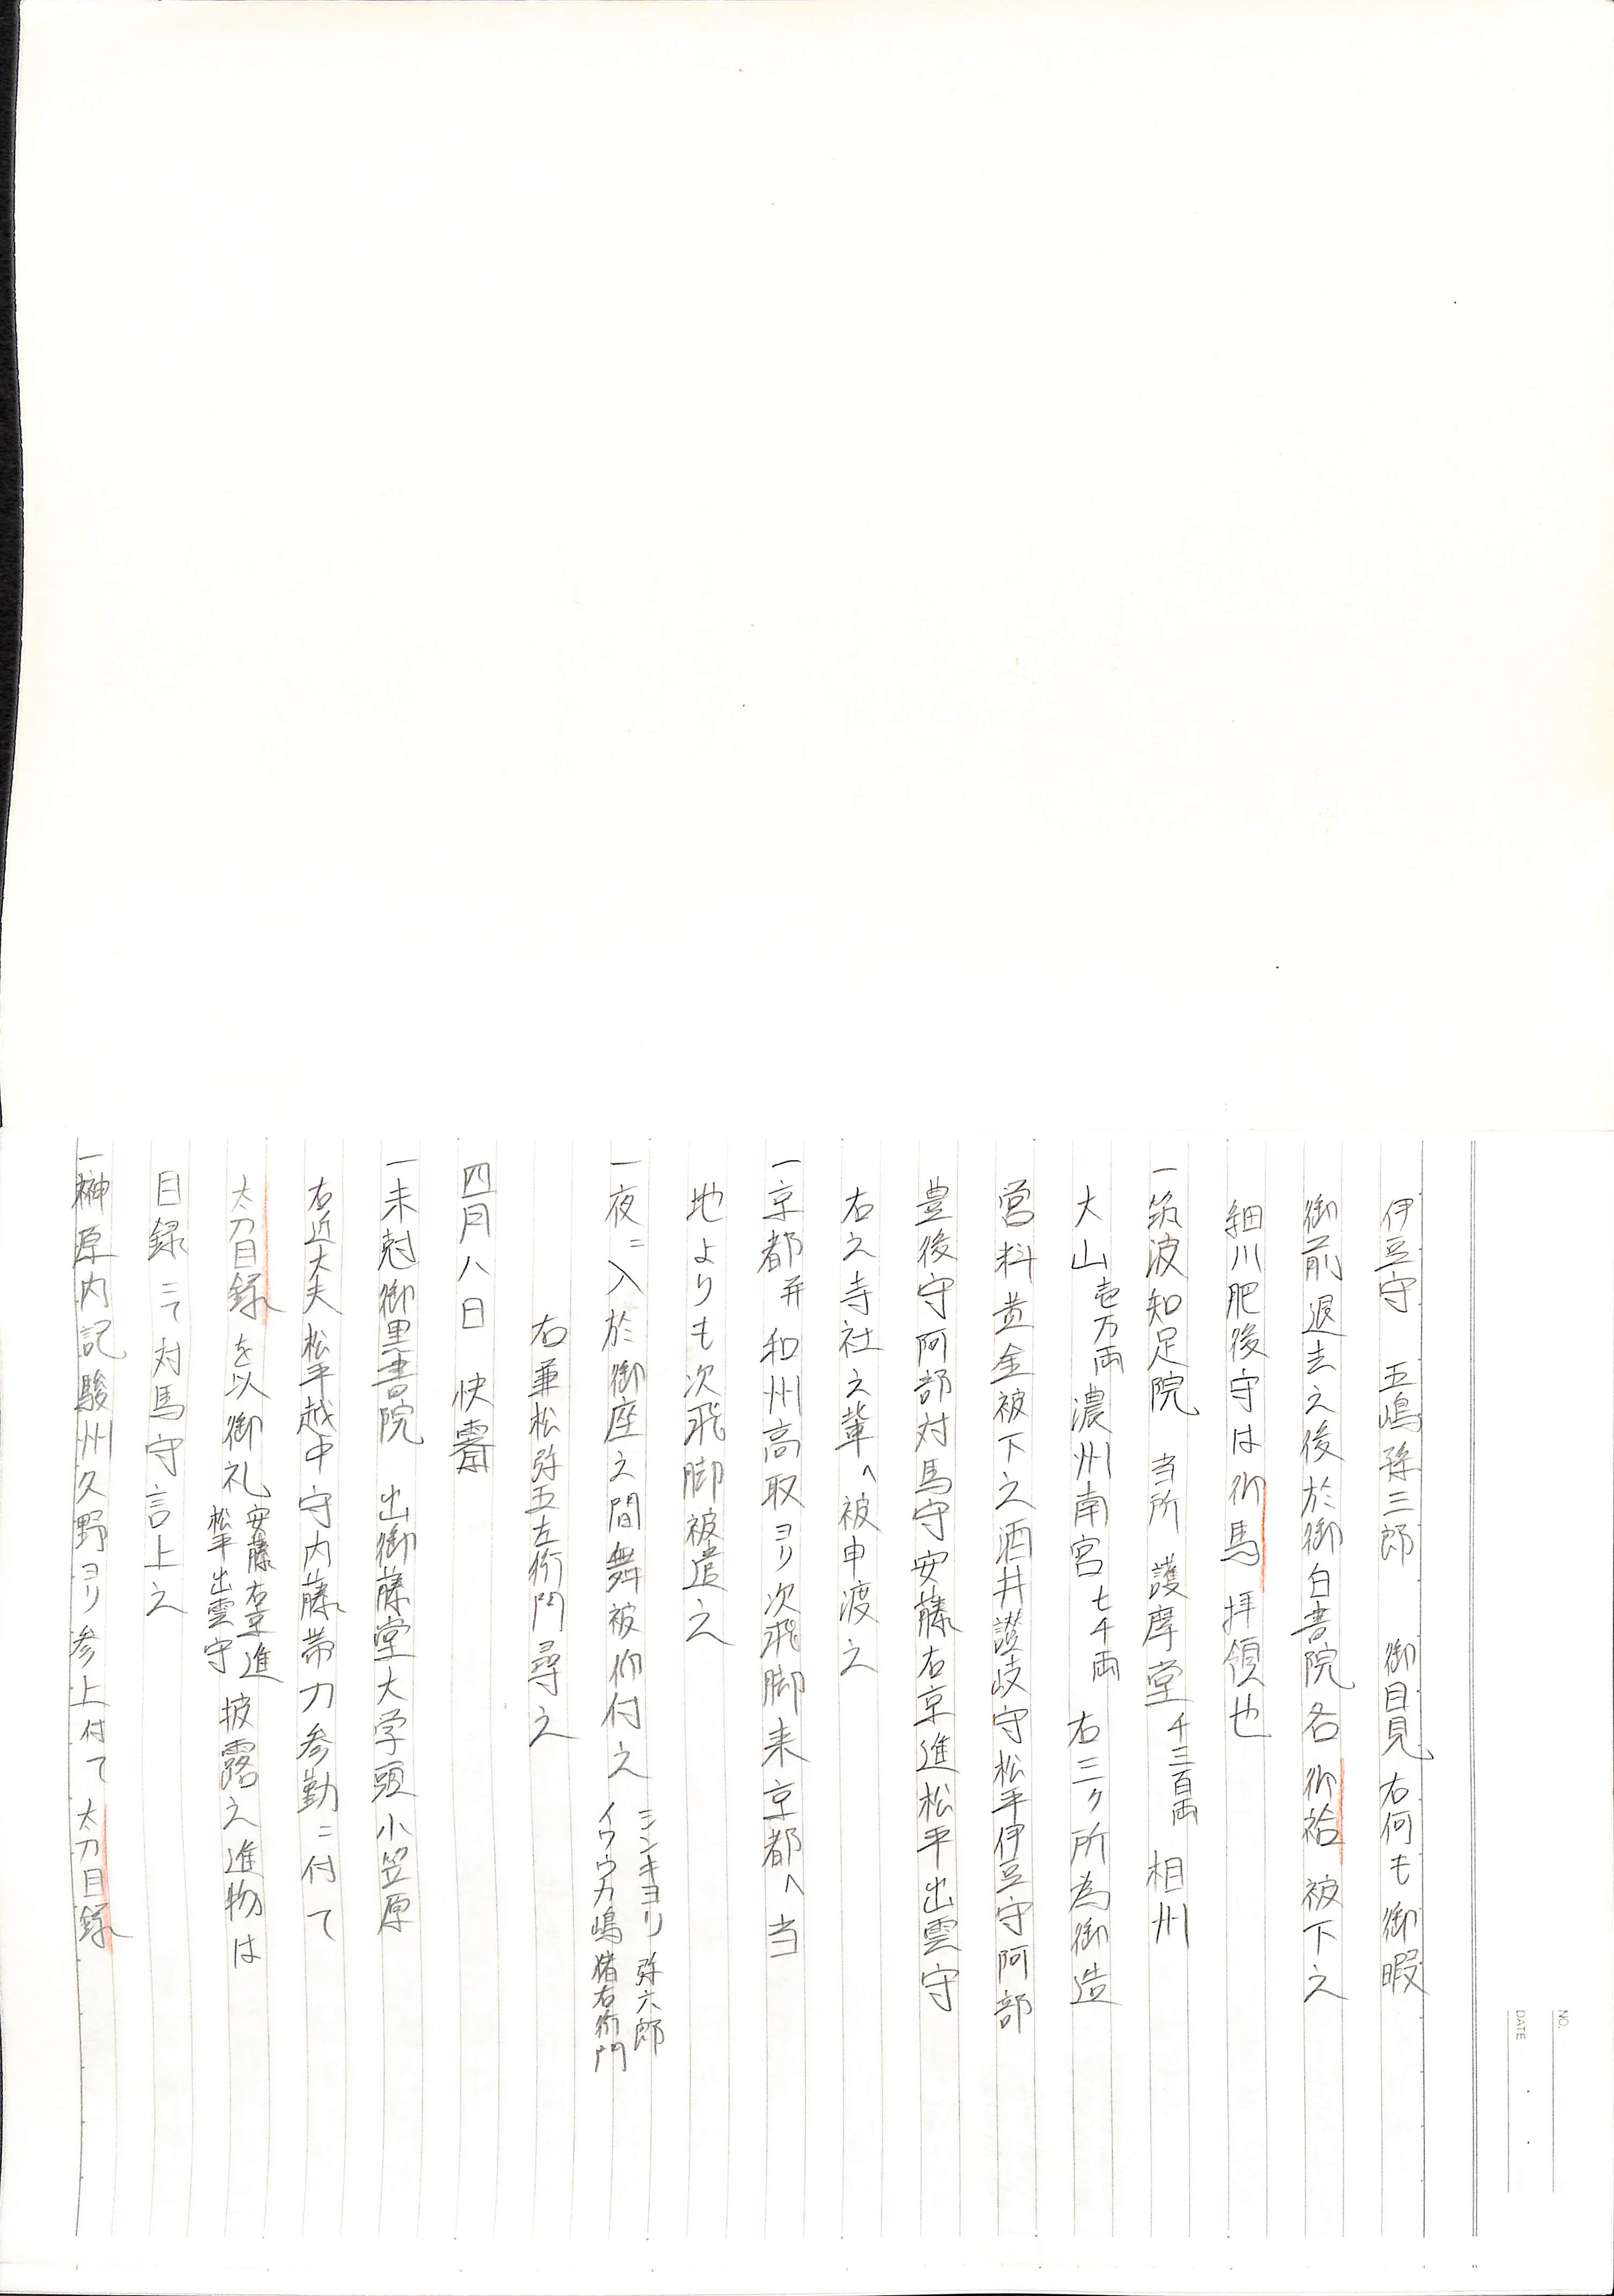 NO.
DATE
伊豆守　五嶋孫三郎　御目見右何も御暇
御前退去之後於御白書院各御袷被下之
細川肥後守は御馬拝領也
一筑波知足院　当所　護摩堂千三百両　相州
大山壱万両　濃州南宮七千両　右三ケ所為御造
営料黄金被下之酒井讃岐守松平伊豆守阿部
豊後守阿部対馬守安藤右京進松平出雲守
右之寺社之輩へ被申渡之
一京都并和州高取ヨリ次飛脚来京都へ当
地よりも次飛脚被遣之
一夜ニ入於御座之間舞被仰付之　シンキヨリ　弥六郎
イワウカ嶋　猪右衛門
右兼松弥五左衛門尋之
四月八日　快霽
一未尅御黒書院　出御藤堂大学頭小笠原
右近大夫松平越中守内藤帯刀参勤ニ付て
太刀目録を以御礼　安藤右京進　松平出雲守　披露之進物は
目録ニて対馬守言上之
一榊原内記駿州久野ヨリ参上付て太刀目録